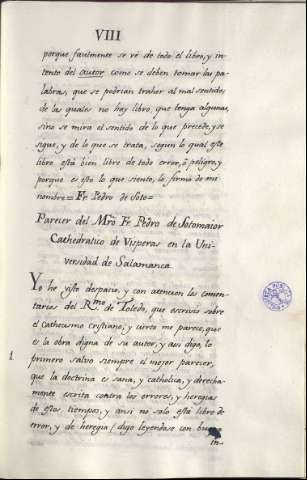 VIII
porque facilmente se vé de todo el libro, y in-
tento del autor como se deben tomar las pa-
labras, que se podrian traher al mal sentido,
de las quales no hay libro, que tenga algunas,
sino se mira al sentido de lo que precede, y se
sigue, y de lo que se trata, segun lo qual este
libro está bien libre de todo error, ò peligro, y
porque es esto lo que siento, lo firmo de mi
nombre = Fr Pedro de Soto =
Parecer del Mrõ Fr Pedro de Sotomaior
Cathedratico de Visperas en la Uni-
versidad de Salamanca.
Yo he visto despacio, y con atencion los comen-
tarios del Rmo de Toledo, que escrivió sobre
el Cathecismo Cristiano, y cierto me parece, que
es la obra digna de su autor, y asi digo, lo
1. primero salvo siempre el mejor parecer,
que la doctrina es sana, y catholica, y derecha-
mente escrita contra los errores, y heregias
de estos tiempos, y ansi no solo está libre de
error, y de heregia (digo leyendose con buena
in-